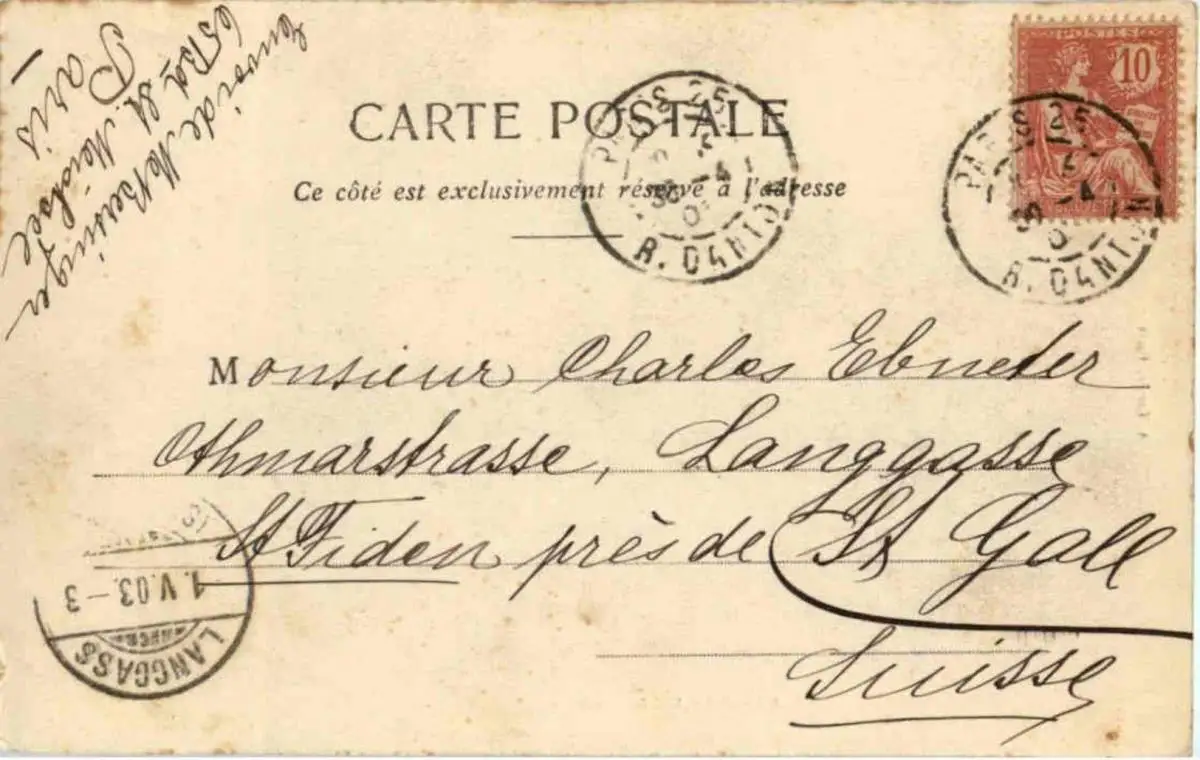 Envoi de M Beringer
65 Bd St Michel
Paris
CARTE POSTALE
Ce côté est exclusivement réservé à l'adresse
POSTES
10
PARIS 25
R. DANTON
PARIS 25
R. DANTON
Monsieur Charles Ebneter
Othmarstrasse, Langgasse
St Fiden près de St Gall
Suisse
1.V.03.-3
LANGGASS